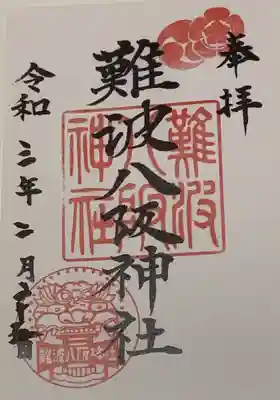 奉拝
難波八阪神社
難波
八阪
神社
令和三年二月 日
難波八阪神社